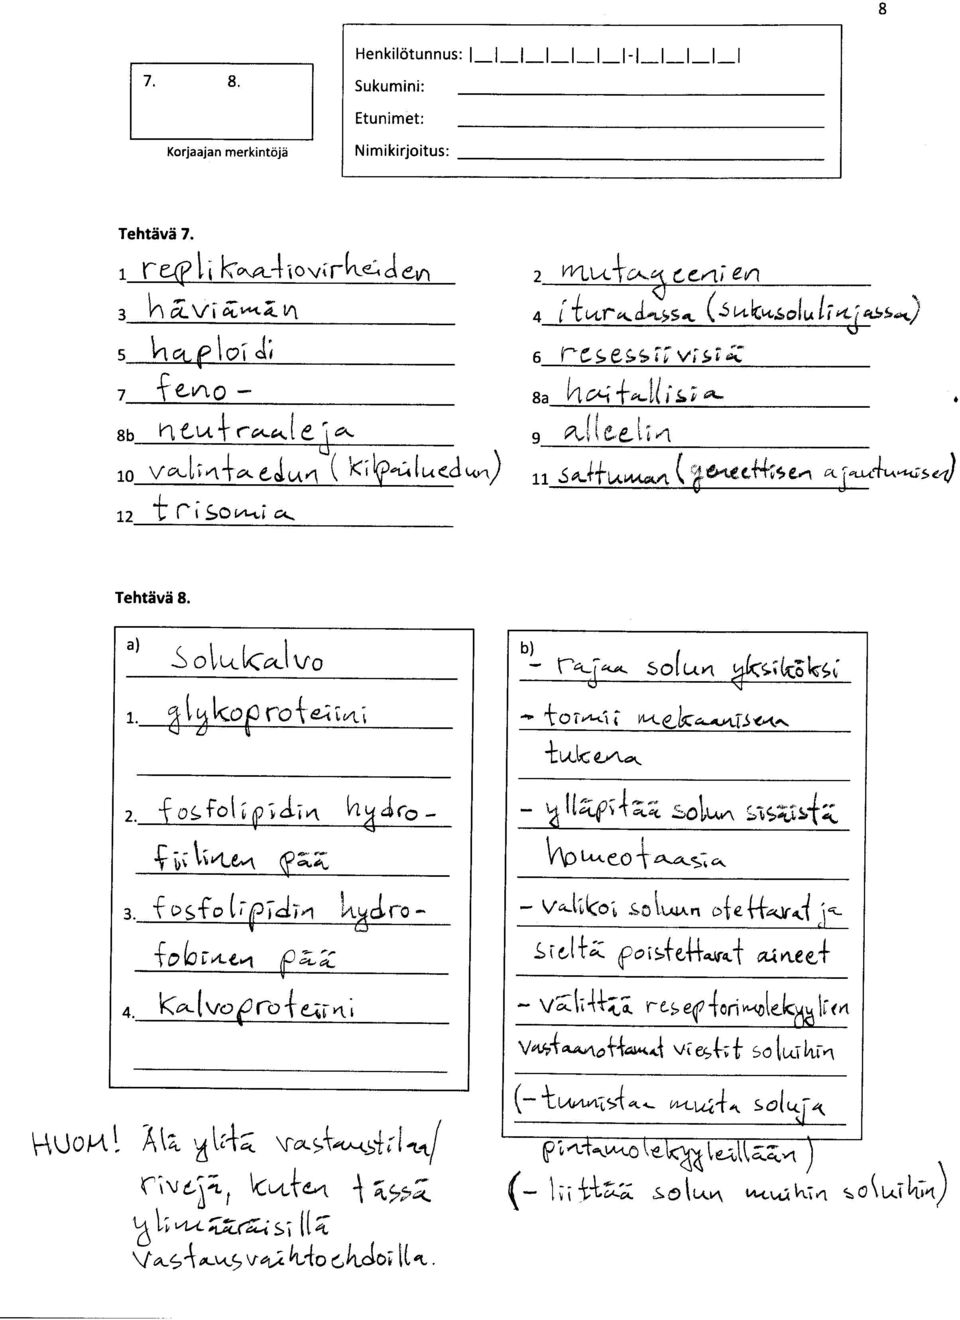 8
Henkilötunnus: |__|__|__|__|__|__|-|__|__|__|__|
7. 8.
Sukumini:
Etunimet:
Korjaajan merkintöjä
Nimikirjoitus:
Tehtävä 7.
1 replikaatiovirheiden
2 mutageenien
3 häviämän
4 ituradassa (sukusolulinjassa)
5 haploidi
6 resessiivisiä
7 feno-
8a haitallisia
8b neutraaleja
9 alleelin
10 valintaedun (kilpailuedun)
11 sattuman (geneettisen ajautumisen)
12 trisomia
Tehtävä 8.
a) Solukalvo
1. glykoproteiini
2. fosfolipidin hydro-
fiilinen pää
3. fosfolipidin hydro-
fobinen pää
4. Kalvoproteiini
b)
- rajaa solun yksiköksi
- toimii mekaanisena
tukena
- ylläpitää solun sisäistä
homeotaasia
- valikoi soluun otettavat ja
sieltä poistettavat aineet
- välittää reseptorimolekyylien
vastaanottamat viestit soluihin
(- tunnistaa muita soluja
pintamolekyyleillään)
(- liittää solun muihin soluihin)
HUOM! Älä ylitä vastaustilaa/
rivejä, kuten tässä
ylimääräisillä
vastausvaihtoehdoilla.